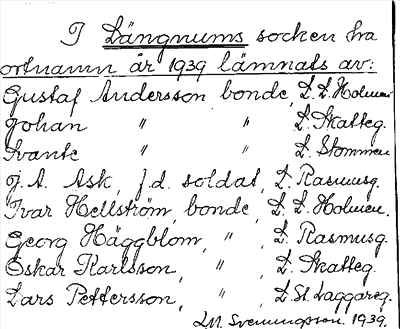 I Längnums socken ha
ortnamn år 1939 lämnats av:
Gustaf Andersson bonde, L. L. Holmen
Johan " " L. Skatteg.
Svante " " L. Stommen
J. A. Ask, f.d. soldat, L. Rasmusg.
Ivar Hellström, bonde, L. L. Holmen.
Georg Häggblom, " , L. Rasmusg.
Oskar Karlsson, " , L. Skatteg.
Lars Pettersson, " , L. St. Laggareg.
Svenungsson 1939.